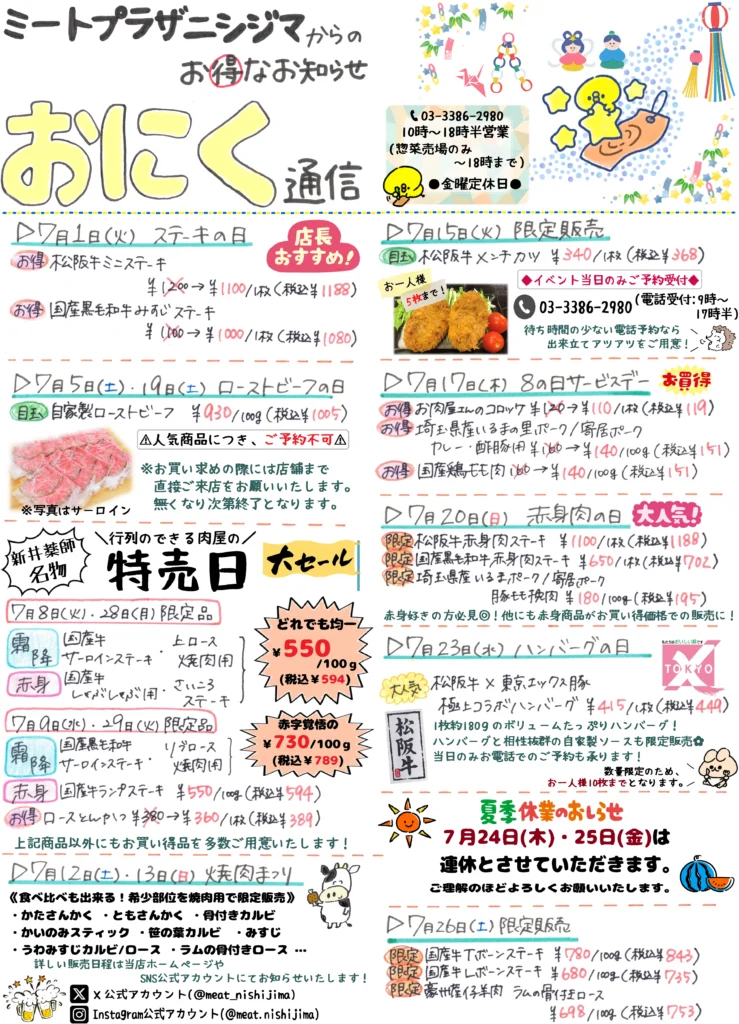 ミートプラザニシジマからの
お得なお知らせ
おにく通信
03-3386-2980
10時～18時半営業
(惣菜売場のみ
～18時まで)
●金曜定休日●
▷7月1日(火) ステーキの日
店長おすすめ!
お得 松阪牛ミニステーキ
¥1200→¥1100/1枚(税込¥1188)
お得 国産黒毛和牛みすじステーキ
¥1100→¥1000/1枚(税込¥1080)
▷7月5日(土)・19日(土) ローストビーフの日
目玉 自家製ローストビーフ ¥930/100g(税込¥1005)
⚠人気商品につき、ご予約不可⚠
※お買い求めの際には店舗まで
直接ご来店をお願いいたします。
無くなり次第終了となります。
※写真はサーロイン
新井薬師名物
\行列のできる肉屋の/
特売日
大セール
7月8日(火)・28日(月)限定品
霜降 国産牛サーロインステーキ・上ロース焼肉用
赤身 国産牛しゃぶしゃぶ用・さいころステーキ
どれでも均一
¥550/100g
(税込¥594)
7月9日(水)・29日(火)限定品
霜降 国産黒毛和牛サーロインステーキ・リブロース焼肉用
赤字覚悟の
¥730/100g
(税込¥789)
赤身 国産牛ランプステーキ ¥550/100g(税込¥594)
お得 ロースとんかつ ¥380→¥360/1枚(税込¥389)
上記商品以外にもお買い得品を多数ご用意いたします!
▷7月12日(土)・13日(日) 焼肉まつり
《食べ比べも出来る!希少部位を焼肉用で限定販売》
・かたさんかく ・ともさんかく ・骨付きカルビ
・かいのみスティック ・笹の葉カルビ ・みすじ
・うわみすじカルビ/ロース ・ラムの骨付きロース …
詳しい販売日程は当店ホームページや
SNS公式アカウントにてお知らせいたします!
X 公式アカウント(@meat_nishijima)
Instagram公式アカウント(@meat.nishijima)
▷7月15日(火) 限定販売
目玉 松阪牛メンチカツ ¥340/1枚(税込¥368)
お一人様
5枚まで!
◆イベント当日のみご予約受付◆
03-3386-2980 (電話受付:9時～17時半)
待ち時間の少ない電話予約なら
出来立てアツアツをご用意!
▷7月17日(木) 8の日サービスデー
お買得
お得 お肉屋さんのコロッケ ¥120→¥110/1枚(税込¥119)
お得 埼玉県産いるまの里ポーク/寄居ポーク
カレー・酢豚用 ¥160→¥140/100g(税込¥151)
お得 国産鶏もも肉 160→¥140/100g(税込¥151)
▷7月20日(日) 赤身肉の日
大人気!
限定 松阪牛赤身肉ステーキ ¥1100/1枚(税込¥1188)
限定 国産黒毛和牛赤身肉ステーキ ¥650/1枚(税込¥702)
限定 埼玉県産いるまポーク/寄居ポーク
豚もも挽肉 ¥180/100g(税込¥195)
赤身好きの方必見◎!他にも赤身商品がお買い得価格での販売に!
▷7月23日(水) ハンバーグの日
TOKYO X
大人気 松阪牛×東京エックス豚
極上コラボハンバーグ ¥415/1枚(税込¥449)
松阪牛
1枚約180gのボリュームたっぷりハンバーグ!
ハンバーグと相性抜群の自家製ソースも限定販売✿
当日のみお電話でのご予約も承ります!
数量限定のため、
お一人様10枚までとなります。
夏季休業のお知らせ
7月24日(木)・25日(金)は
連休とさせていただきます。
ご理解のほどよろしくお願いいたします。
▷7月26日(土) 限定販売
限定 国産牛Tボーンステーキ ¥780/100g(税込¥843)
限定 国産牛Lボーンステーキ ¥680/100g(税込¥735)
限定 豪州産仔羊肉 ラムの骨付きロース
¥698/100g(税込¥753)